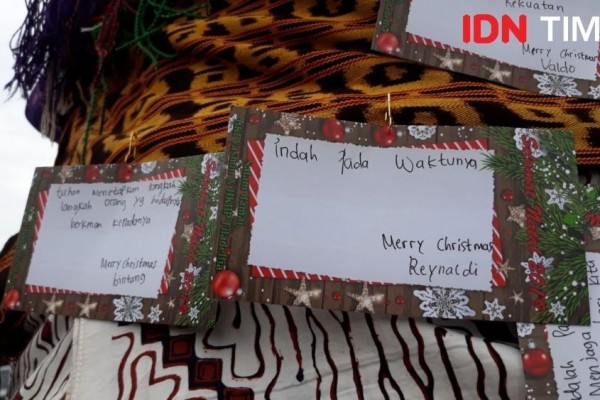 kekuatan
Merry Christmas
Valdo
IDN TIM
Indah Pada Waktunya
Merry Christmas
Reynaldi
tuhan menetapkan langkah
langkah orang yg hidupnya
berkenan
Merry Christmas
bintang
adalah
Menjaga
kita